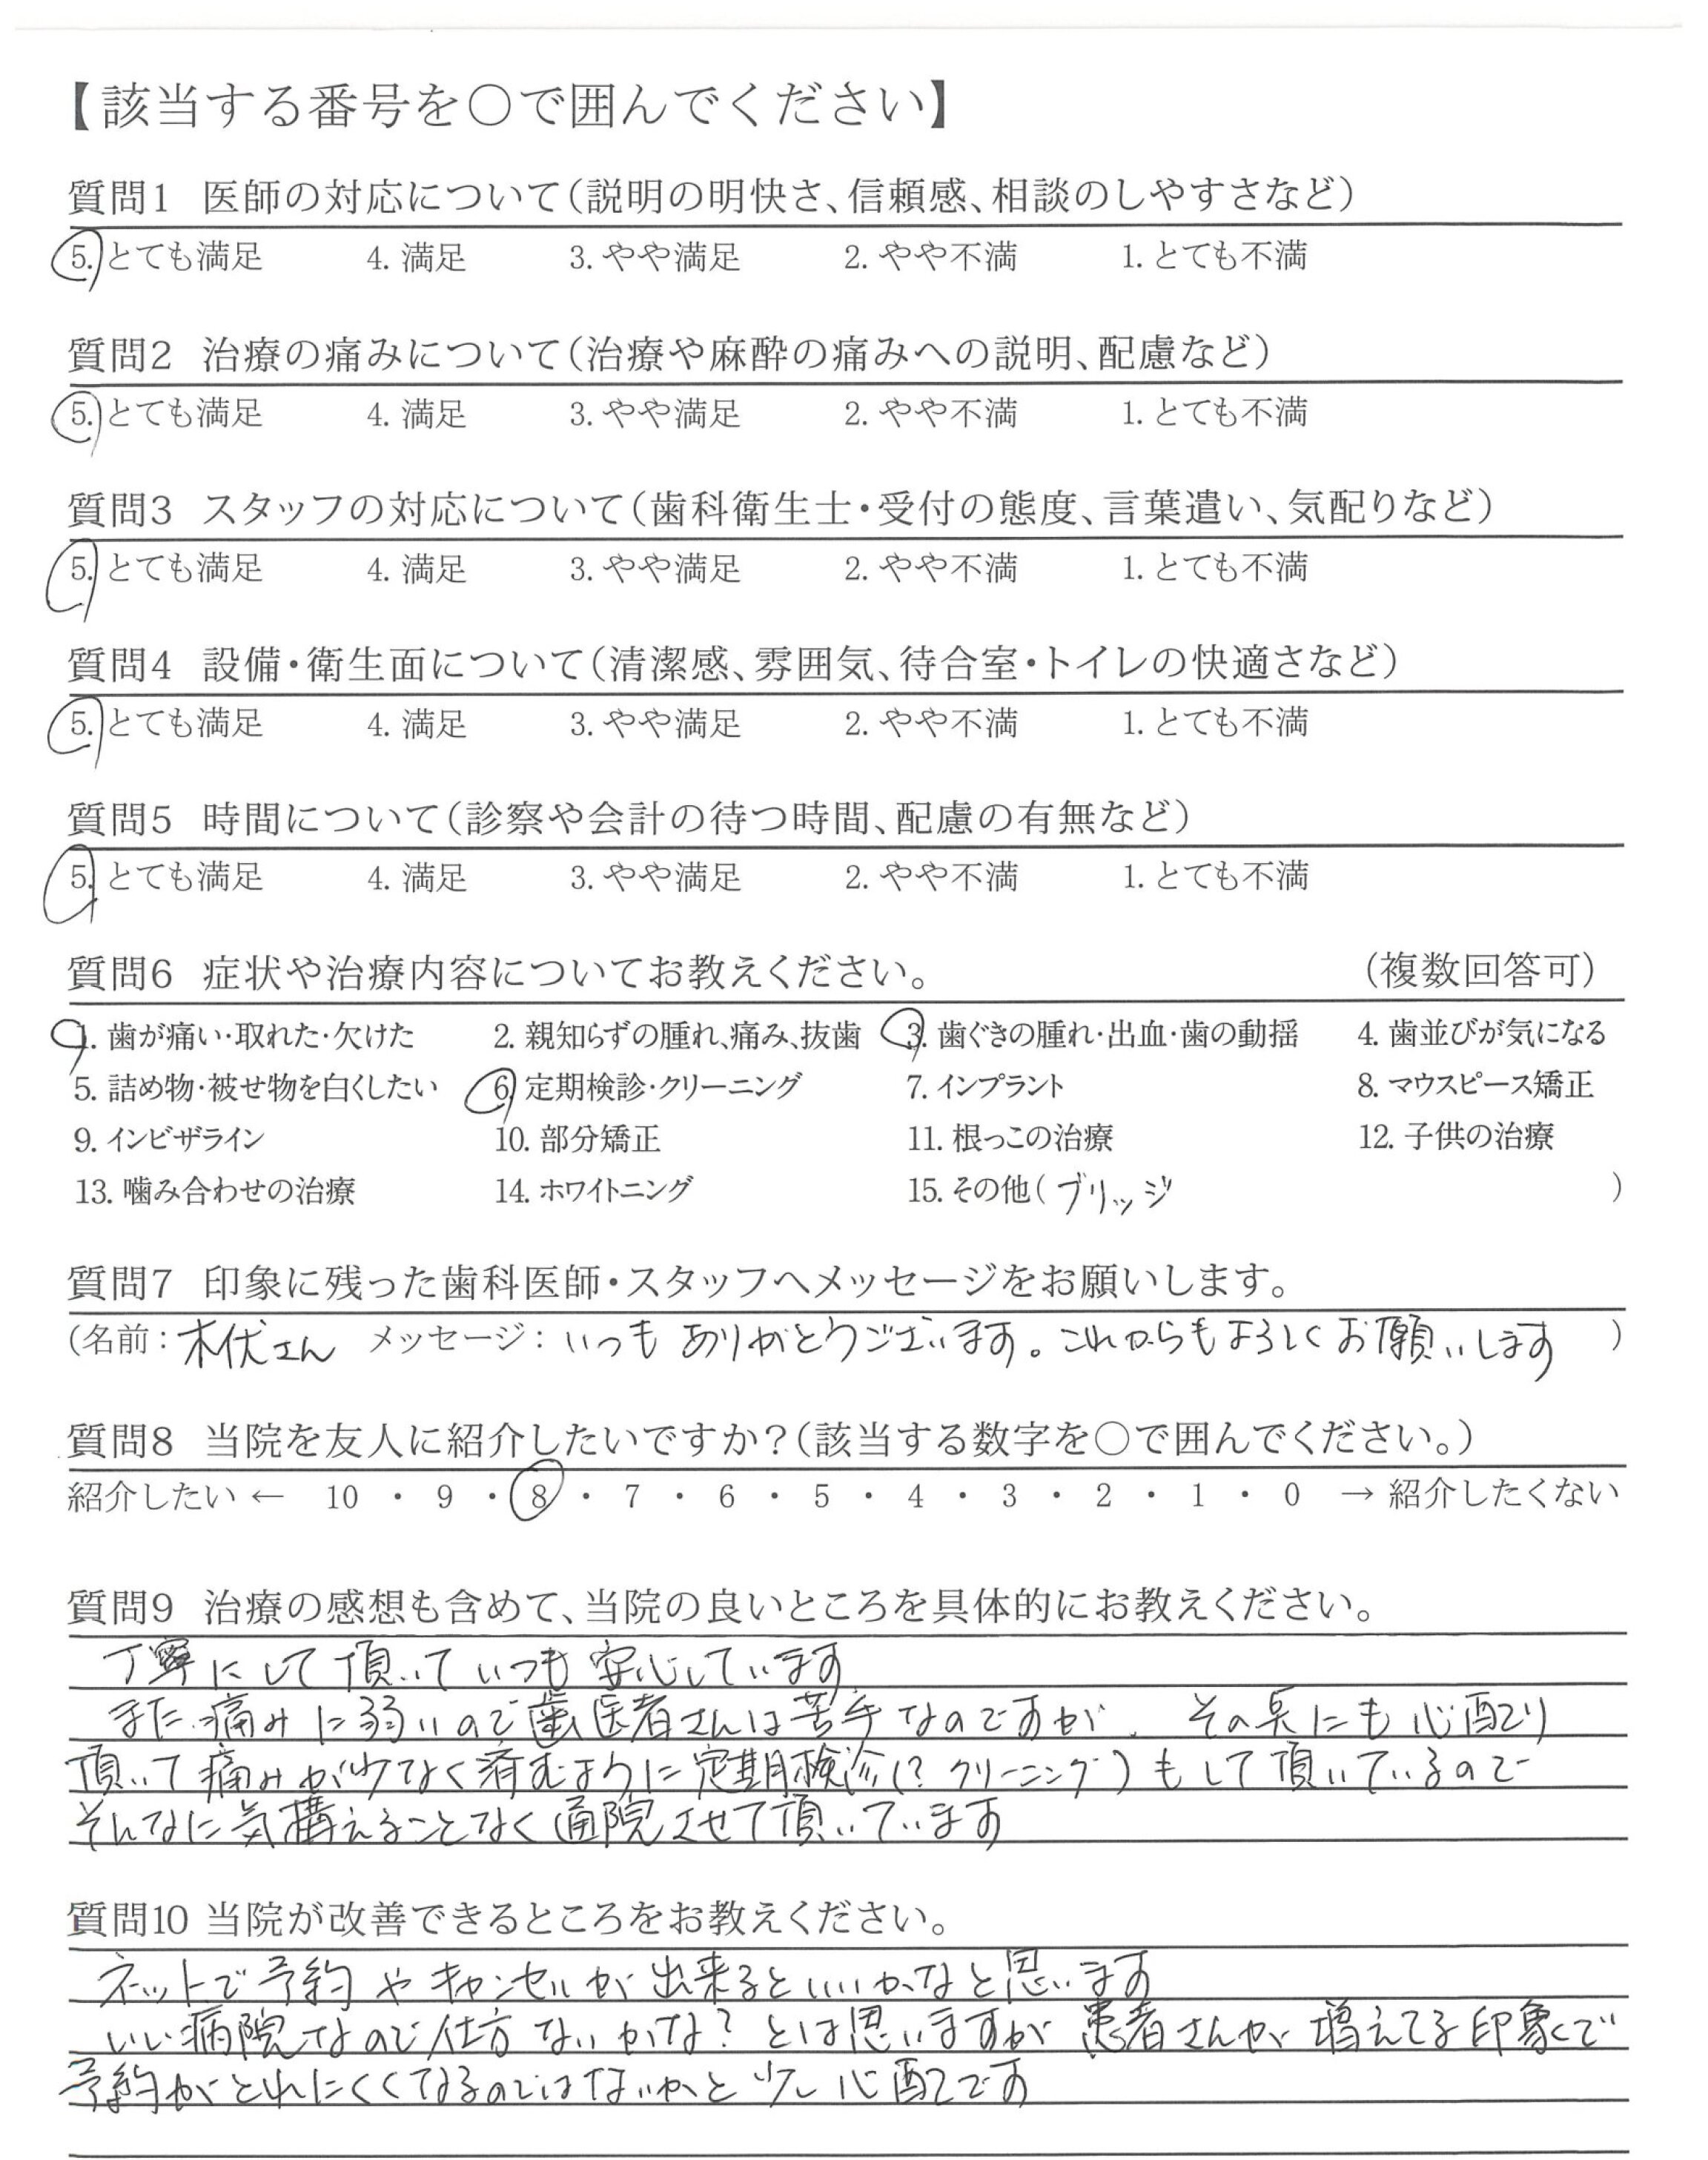 【該当する番号を○で囲んでください】
質問1 医師の対応について(説明の明快さ、信頼感、相談のしやすさなど)
5. とても満足 4. 満足 3. やや満足 2. やや不満 1. とても不満
質問2 治療の痛みについて(治療や麻酔の痛みへの説明、配慮など)
5. とても満足 4. 満足 3. やや満足 2. やや不満 1. とても不満
質問3 スタッフの対応について(歯科衛生士・受付の態度、言葉遣い、気配りなど)
5. とても満足 4. 満足 3. やや満足 2. やや不満 1. とても不満
質問4 設備・衛生面について(清潔感、雰囲気、待合室・トイレの快適さなど)
5. とても満足 4. 満足 3. やや満足 2. やや不満 1. とても不満
質問5 時間について(診察や会計の待つ時間、配慮の有無など)
5. とても満足 4. 満足 3. やや満足 2. やや不満 1. とても不満
質問6 症状や治療内容についてお教えください。 (複数回答可)
1. 歯が痛い・取れた・欠けた 2. 親知らずの腫れ、痛み、抜歯 3. 歯ぐきの腫れ・出血・歯の動揺 4. 歯並びが気になる
5. 詰め物・被せ物を白くしたい 6. 定期検診・クリーニング 7. インプラント 8. マウスピース矯正
9. インビザライン 10. 部分矯正 11. 根っこの治療 12. 子供の治療
13. 噛み合わせの治療 14. ホワイトニング 15. その他( ブリッジ )
質問7 印象に残った歯科医師・スタッフへメッセージをお願いします。
(名前: 木伏さん メッセージ: いつもありがとうございます。これからもよろしくお願いします )
質問8 当院を友人に紹介したいですか?(該当する数字を○で囲んでください。)
紹介したい ← 10 ・ 9 ・ 8 ・ 7 ・ 6 ・ 5 ・ 4 ・ 3 ・ 2 ・ 1 ・ 0 → 紹介したくない
質問9 治療の感想も含めて、当院の良いところを具体的にお教えください。
丁寧にして頂いていつも安心しています
また、痛みに弱いので歯医者さんは苦手なのですが、その点にも心配り
頂いて痛みが少なく済むように定期検診(?クリーニング)もして頂いているので
そんなに気構えることなく通院させて頂いています
質問10 当院が改善できるところをお教えください。
ネットで予約やキャンセルが出来るといいかなと思います
いい病院なので仕方ないかな?とは思いますが患者さんが増えてる印象で
予約がとれにくくなるのではないかと少し心配です